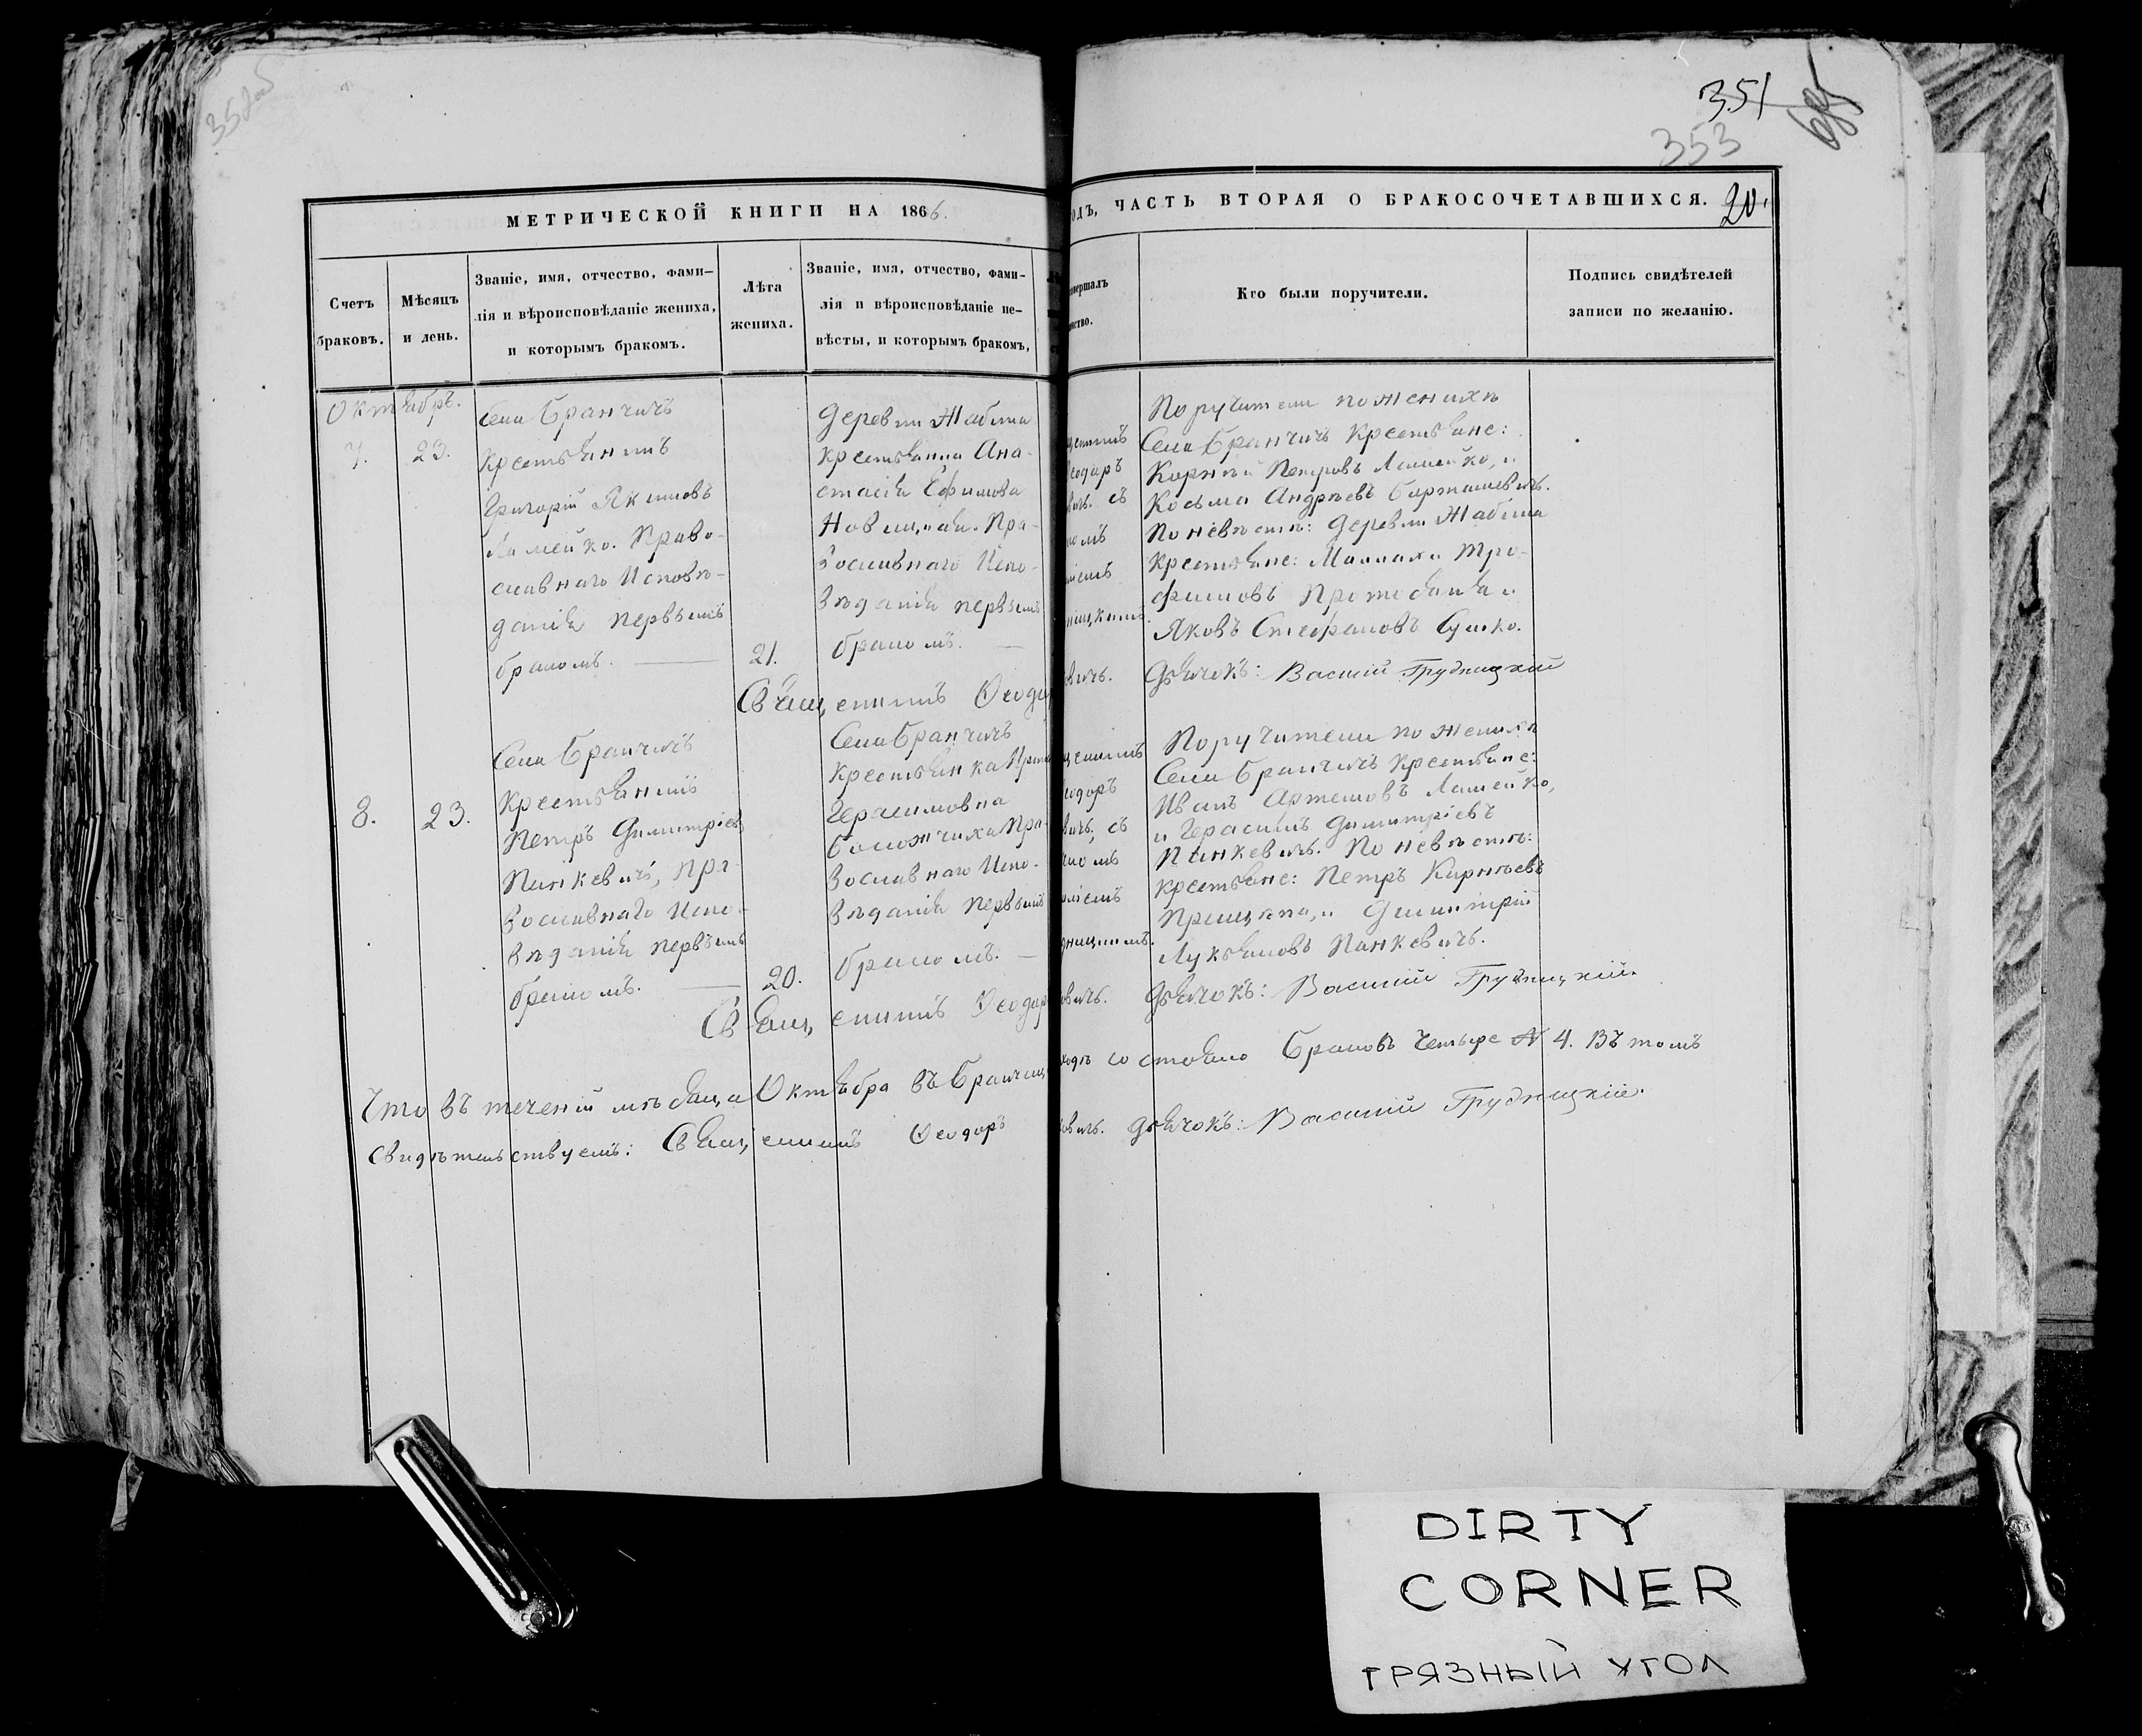 351
353
МЕТРИЧЕСКОЙ КНИГИ НА 1866.
ОДЪ, ЧАСТЬ ВТОРАЯ О БРАКОСОЧЕТАВШИХСЯ. 20.
Счетъ браковъ.
Мѣсяцъ и день.
Званіе, имя, отчество, фами-
лія и вѣроисповѣданіе жениха,
и которымъ бракомъ.
Лѣта
жениха.
Званіе, имя, отчество, фами-
лія и вѣроисповѣданіе не-
вѣсты, и которымъ бракомъ,
Кто были поручители.
Подпись свидѣтелей
записи по желанію.
Октябрь.
7.
23.
Села Бранчичъ
Крестьянинъ
Григорій Якимовъ
Ламейко. Право-
славнаго Исповѣ-
данія первымъ
бракомъ.
21.
Деревни Жабина
Крестьянка Ана-
стасія Ефимова
Новицкая. Пра-
вославнаго Испо-
вѣданія первымъ
бракомъ.
щенникъ
еодоръ
вичъ. съ
комъ
ліемъ
ницкимъ.
Поручители по женихѣ
Села Бранчичъ Крестьяне:
Корнѣй Петровъ Ламейко, и
Косьма Андреевъ Барташевичъ.
По невѣстѣ: Деревни Жабина
Крестьяне: Малахи Тро-
фимовъ и
Яковъ Стефановъ Сушко.
Священникъ Ѳеодор
овичъ. Дьячокъ: Василій Грудницкій
8.
23.
Села Бранчичъ
Крестьянинъ
Петръ Димитріевъ
Панкевичъ, Пра-
вославнаго Испо-
вѣданія первымъ
бракомъ.
20.
Села Бранчичъ
Крестьянка
Герасимовна
Пра-
вославнаго Испо-
вѣданія первымъ
бракомъ.
щенникъ
еодоръ
вичъ, съ
комъ
иліемъ
дницкимъ.
Поручители по женихѣ
Села Бранчичъ Крестьяне:
Иванъ Артемовъ Ламейко,
и Герасимъ Димитріевъ
Панкевичъ. По невѣстѣ:
Крестьяне: Петръ Карнѣевъ
и Димитрій
Лукьяновъ Панкевичъ.
Священникъ Ѳеодор
овичъ. Дьячокъ: Василій Грудницкій.
Что въ теченіи мѣсяца Октября въ Бранчиц
ходѣ состояло Браковъ Четыре № 4. Въ томъ
свидѣтельствуемъ: Священникъ Ѳеодоръ
овичъ. Дьячокъ: Василій Грудницкій.
DIRTY
CORNER
ГРЯЗНЫЙ УГОЛ